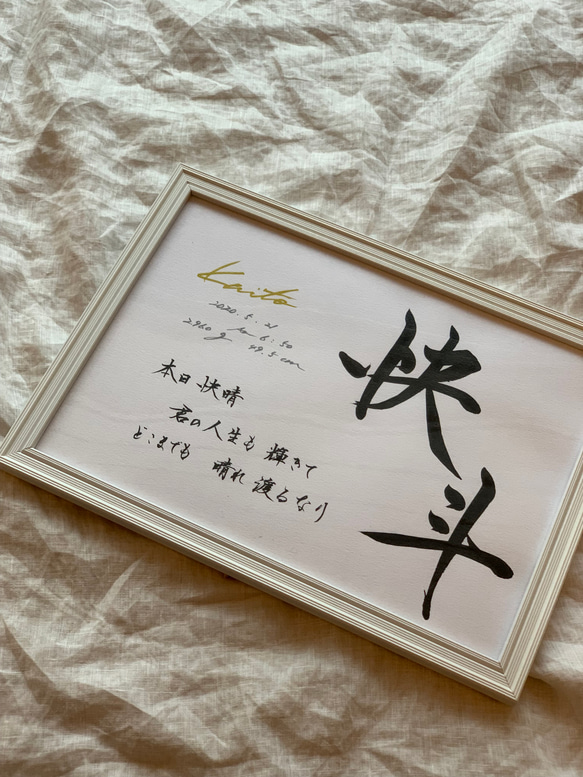 快斗
Kaito
2020.5.21
am 6:50
2960g 49.5cm
本日、快晴
君の人生も 輝きて
どこまでも 晴れ渡るなり